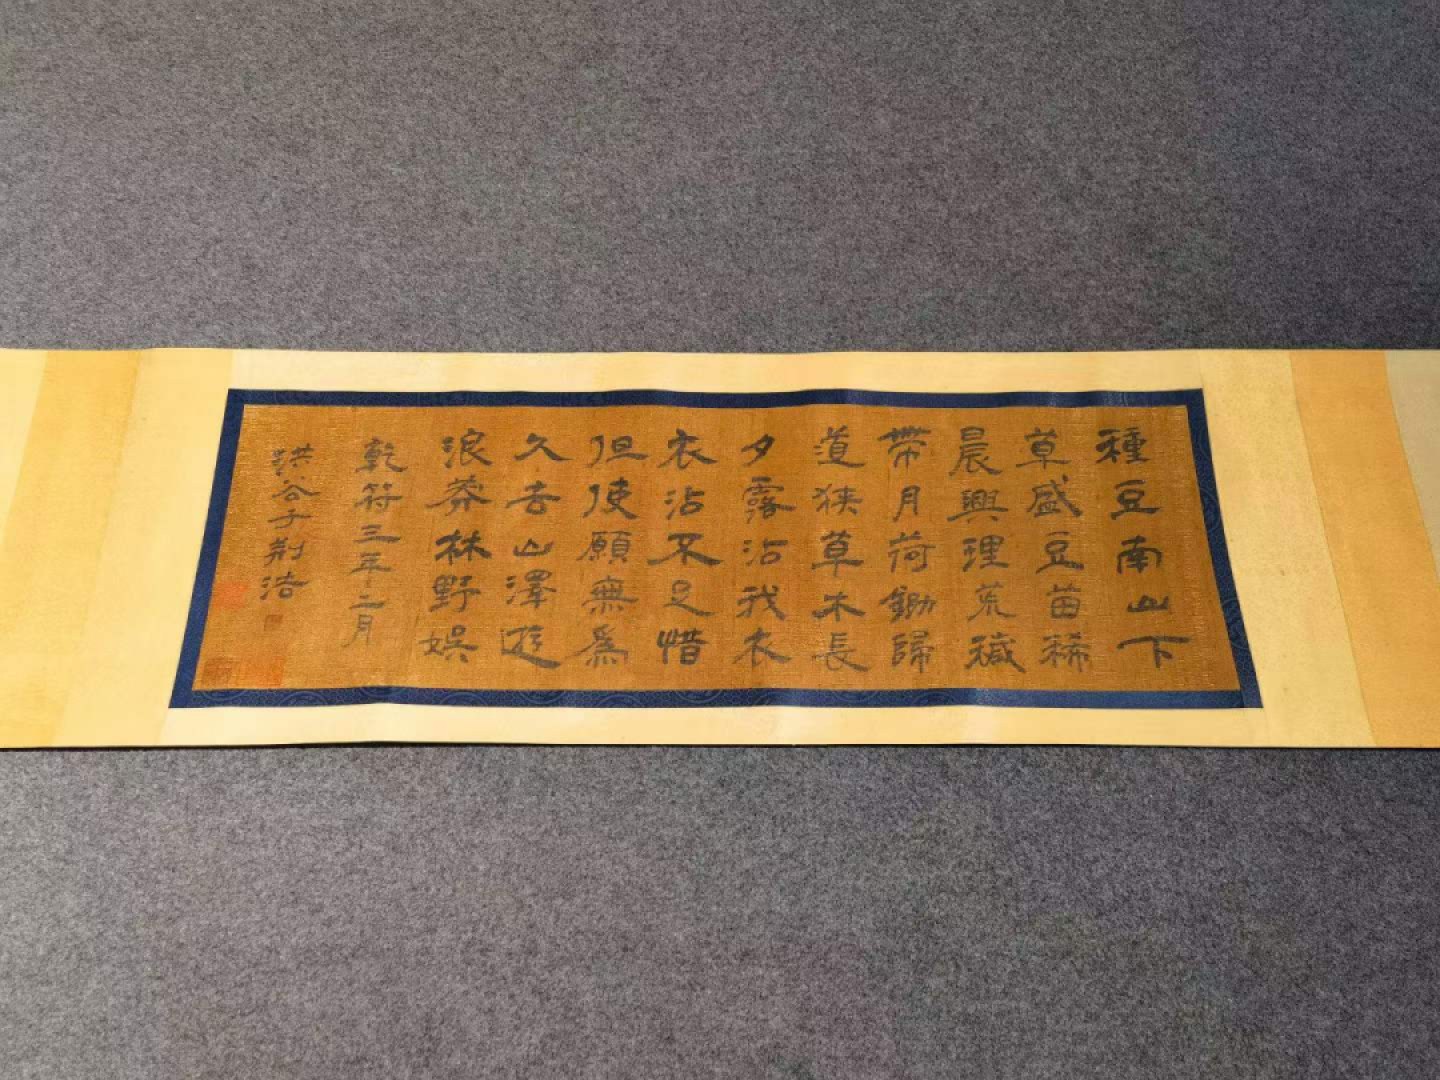 種豆南山下
草盛豆苗稀
晨興理荒穢
帶月荷鋤歸
道狹草木長
夕露沾我衣
衣沾不足惜
但使願無為
久去山澤遊
浪莽林野娛
乾符三年二月
洪谷子荊浩